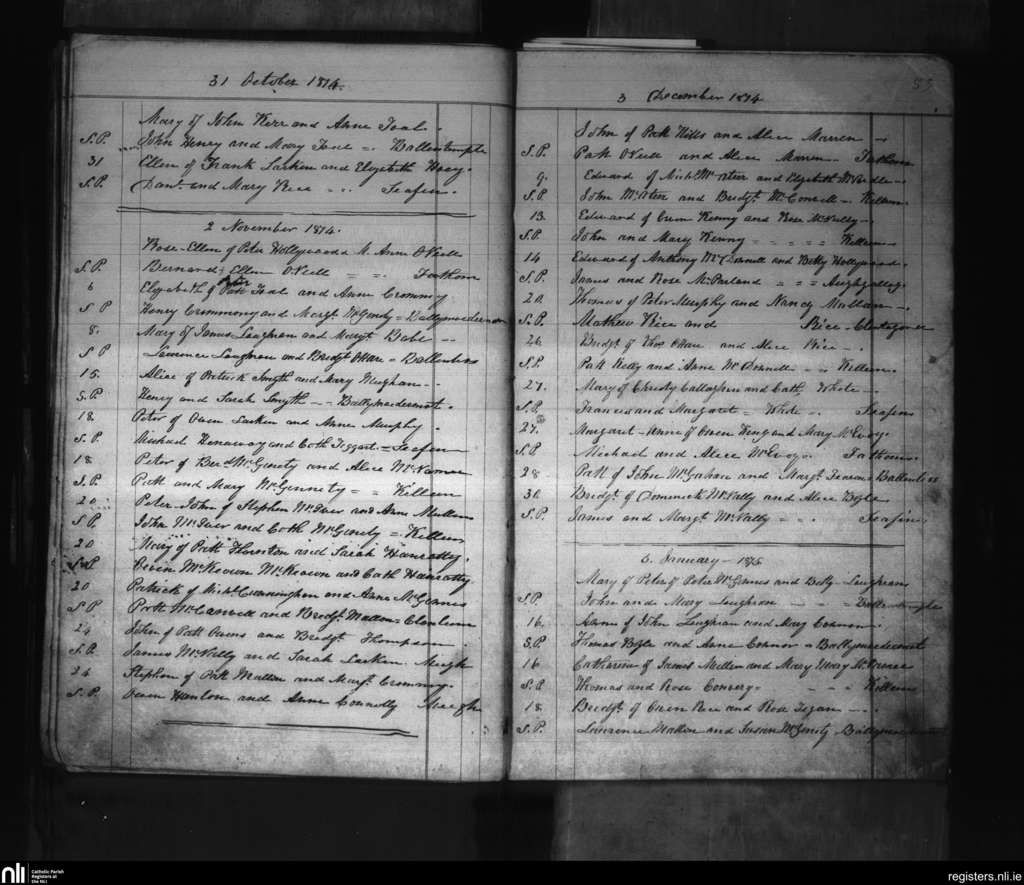 31 October 1874.
Mary of John Kerr and Anne Toal.
S.P. John Henry and Mary Toal = Ballintemple
31 Ellen of Frank Larkin and Elizabeth Hoey.
S.P. Danl. and Mary Rice .. Seafin.
2 November 1874.
Rose-Ellen of Peter Hollywood & M. Anne O'Neill
S.P. Bernard & Ellen O'Neill = .. Fathom
6 Elizabeth of Patt Toal and Anne Crommy
S P Henry Crommony and Margt. McGinity = Ballymacdermot
8. Mary of James Loughran and Margt.
S P Lawrence Loughran and Bridgt. O'Hare = Ballinliss
15. Alice of Patrick Smyth and Mary Meighan --
S.P. Henry and Sarah Smyth -- Ballymacdermot.
18. Peter of Owen Larkin and Anne Murphy.
S.P. Michael and Cath Taggart = Seafin
18 Peter of Bernd. McGinety and Alice McNamee
S.P. Patt and Mary McGennety = = Killeen
20 Peter-John of Stephen and Anne Mullen
S.P. John and Cath McGinity = Killeen
20 Mary of Patt Thornton and Sarah Hanratty.
S.P. McKeown McKeown and Cath Hanratty
20 Patrick of Michl. Cunningham and Anne McGinnis
S P Patt McCanvill and Bridgt. Mallon = Clontum
24 John of Patt Owens and Bridgt. Thompson
S.P. James McNally and Sarah Larkin. Meigh
24 Stephen of Patt Mallon and Margt. Crommy.
S.P. Owen Hanlon and Anne Connolly Meigh
53
3 December 1874
John of Patt Mills and Alice Marron
S.P. Patt O'Neill and Alice Marron Fathom
9. Edward of Michl. McAteer and Elizabeth McArdle
S.P. John McAteer and Bridgt. McConvill - Killeen
13. Edward of Owen Kenny and Rose McNally -.
S.P. John and Mary Kenny = = = = Killeen
14 Edward of Anthony McDonnell and Betty Hollywood.
S.P. James and Rose McParland = = = Aughgalleg
20 Thomas of Peter Murphy and Nancy Mallon -.
S.P. Mathew Rice and Rice - Clontygora
26 Bridgt. of Thos O'Hare and Alice Rice -.
S.P. Patt Kelly and Anne McDonnell .. .. Killeen.
27. Mary of Christy Callaghan and Cath. White -.
S.P. Francis and Margaret = White .. Seafin
27. Margaret-Anne of Owen King and Mary McEvoy.
S.P Michael and Alice McEvoy. Fathom.
28 Patt of John McGahan and Margt. Fearon Ballinliss
30 Bridgt. of Dominick McNally and Alice Boyle
S.P. James and Margt. McNally = .. Seafin.
6. January - 1875
Mary of Peter of Peter McGinnis and Betty Loughran
S.P. John and Mary Loughran
16. of John Loughran and Mary Connor.
S.P. Thomas Boyle and Anne Connor = Ballymacdermot
16 Catharine of James Mullen and Mary Mary
S.P Thomas and Rose Convery. - - = Killeen
18. Bridgt. of Owen Rice and Rose Fegan - - -
S.P. Lawrence Mallon and Susan McGinity
nli
Catholic Parish
Registers at
the NLI
registers.nli.ie